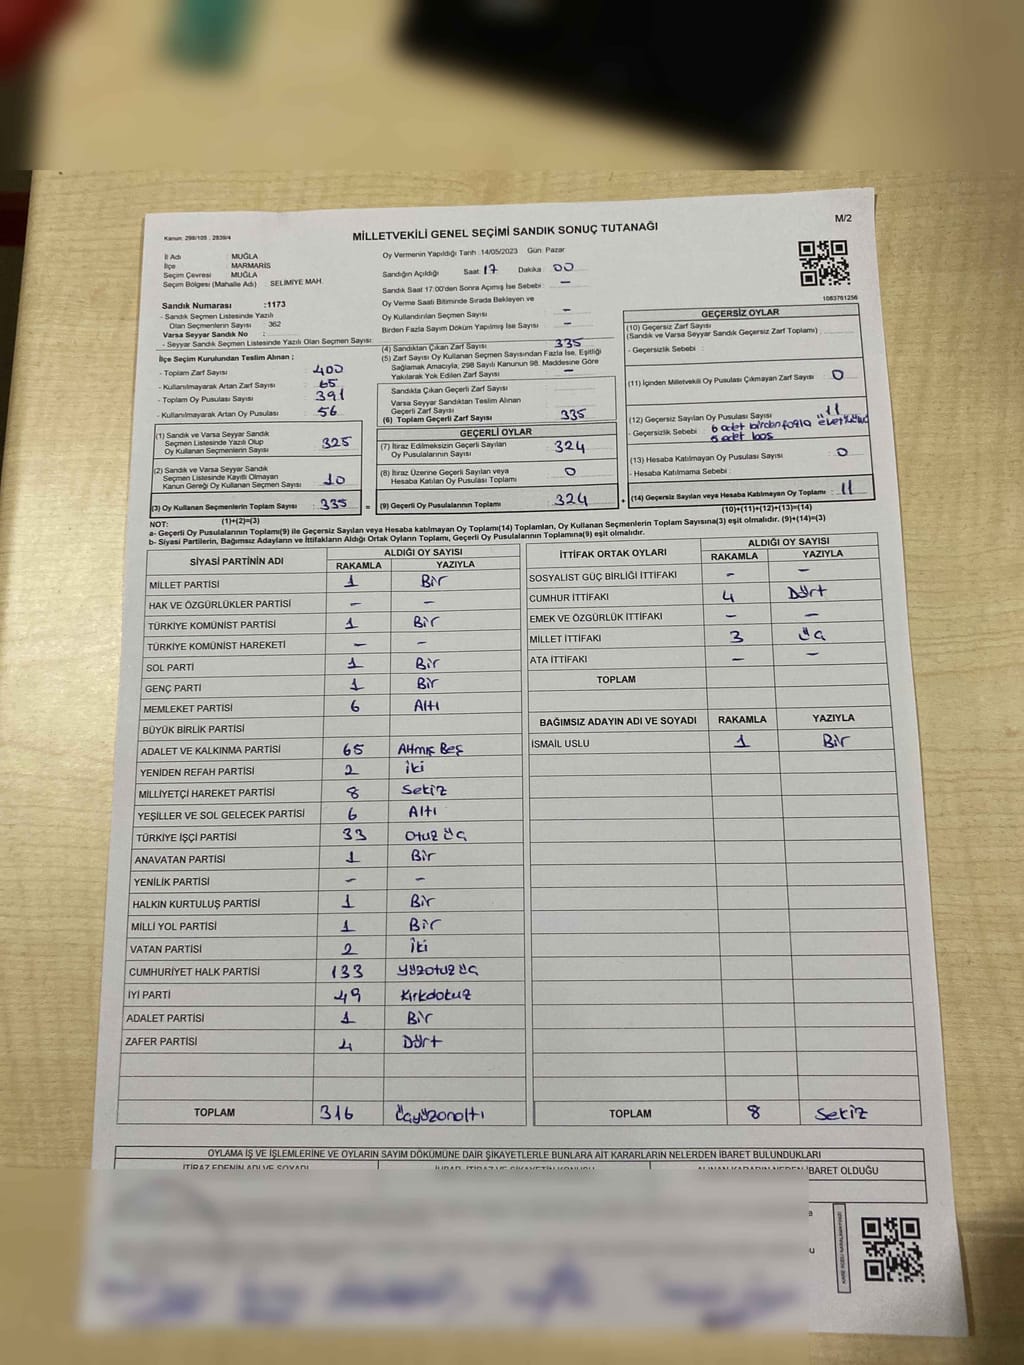 M/2
Kanun: 298/105 , 2839/4
MİLLETVEKİLİ GENEL SEÇİMİ SANDIK SONUÇ TUTANAĞI
İl Adı : MUĞLA
İlçe : MARMARİS
Seçim Çevresi : MUĞLA
Seçim Bölgesi (Mahalle Adı) : SELİMİYE MAH.
Sandık Numarası :1173
- Sandık Seçmen Listesinde Yazılı
Olan Seçmenlerin Sayısı 362
Varsa Seyyar Sandık No :
- Seyyar Sandık Seçmen Listesinde Yazılı Olan Seçmen Sayısı:
Oy Vermenin Yapıldığı Tarih :14/05/2023 Gün: Pazar
Sandığın Açıldığı Saat 17 Dakika 00
Sandık Saat 17:00'den Sonra Açımış İse Sebebi : -
Oy Verme Saati Bitiminde Sırada Bekleyen ve
Oy Kullandırılan Seçmen Sayısı -
Birden Fazla Sayım Döküm Yapılmış İse Sayısı -
1083761256
İlçe Seçim Kurulundan Teslim Alınan ;
- Toplam Zarf Sayısı 400
- Kullanılmayarak Artan Zarf Sayısı 65
- Toplam Oy Pusulası Sayısı 391
- Kullanılmayarak Artan Oy Pusulası 56
(1) Sandık ve Varsa Seyyar Sandık
Seçmen Listesinde Yazılı Olup
Oy Kullanan Seçmenlerin Sayısı 325
(2) Sandık ve Varsa Seyyar Sandık
Seçmen Listesinde Kayıtlı Olmayan
Kanun Gereği Oy Kullanan Seçmen Sayısı 10
(3) Oy Kullanan Seçmenlerin Toplam Sayısı 335
(1)+(2)=(3)
(4) Sandıktan Çıkan Zarf Sayısı 335
(5) Zarf Sayısı Oy Kullanan Seçmen Sayısından Fazla İse, Eşitliği
Sağlamak Amacıyla; 298 Sayılı Kanunun 98. Maddesine Göre
Yakılarak Yok Edilen Zarf Sayısı -
Sandıkta Çıkan Geçerli Zarf Sayısı
Varsa Seyyar Sandıktan Teslim Alınan
Geçerli Zarf Sayısı
(6) Toplam Geçerli Zarf Sayısı 335
GEÇERLİ OYLAR
(7) İtiraz Edilmeksizin Geçerli Sayılan
Oy Pusulalarının Sayısı 324
(8) İtiraz Üzerine Geçerli Sayılan veya
Hesaba Katılan Oy Pusulası Toplamı 0
= (9) Geçerli Oy Pusulalarının Toplamı 324
GEÇERSİZ OYLAR
(10) Geçersiz Zarf Sayısı
(Sandık ve Varsa Seyyar Sandık Geçersiz Zarf Toplamı)
- Geçersizlik Sebebi :
(11) İçinden Milletvekili Oy Pusulası Çıkmayan Zarf Sayısı 0
(12) Geçersiz Sayılan Oy Pusulası Sayısı 11
- Geçersizlik Sebebi : 6 adet birden fazla
adet boş
(13) Hesaba Katılmayan Oy Pusulası Sayısı 0
- Hesaba Katılmama Sebebi :
+ (14) Geçersiz Sayılan veya Hesaba Katılmayan Oy Toplamı 11
(10)+(11)+(12)+(13)=(14)
NOT:
a- Geçerli Oy Pusulalarının Toplamı(9) ile Geçersiz Sayılan veya Hesaba katılmayan Oy Toplamı(14) Toplamları, Oy Kullanan Seçmenlerin Toplam Sayısına(3) eşit olmalıdır. (9)+(14)=(3)
b- Siyasi Partilerin, Bağımsız Adayların ve İttifakların Aldığı Ortak Oyların Toplamı, Geçerli Oy Pusulalarının Toplamına(9) eşit olmalıdır.
SİYASİ PARTİNİN ADI ALDIĞI OY SAYISI
RAKAMLA YAZIYLA
MİLLET PARTİSİ 1 Bir
HAK VE ÖZGÜRLÜKLER PARTİSİ - -
TÜRKİYE KOMÜNİST PARTİSİ 1 Bir
TÜRKİYE KOMÜNİST HAREKETİ - -
SOL PARTİ 1 Bir
GENÇ PARTİ 1 Bir
MEMLEKET PARTİSİ 6 Altı
BÜYÜK BİRLİK PARTİSİ
ADALET VE KALKINMA PARTİSİ 65 Atmış Beş
YENİDEN REFAH PARTİSİ 2 İki
MİLLİYETÇİ HAREKET PARTİSİ 8 Sekiz
YEŞİLLER VE SOL GELECEK PARTİSİ 6 Altı
TÜRKİYE İŞÇİ PARTİSİ 33 otuz üç
ANAVATAN PARTİSİ 1 Bir
YENİLİK PARTİSİ - -
HALKIN KURTULUŞ PARTİSİ 1 Bir
MİLLİ YOL PARTİSİ 1 Bir
VATAN PARTİSİ 2 İki
CUMHURİYET HALK PARTİSİ 133 yüzotuz üç
İYİ PARTİ 49 Kırkdokuz
ADALET PARTİSİ 1 Bir
ZAFER PARTİSİ 4 Dört
TOPLAM 316 üçyüzonaltı
İTTİFAK ORTAK OYLARI ALDIĞI OY SAYISI
RAKAMLA YAZIYLA
SOSYALİST GÜÇ BİRLİĞİ İTTİFAKI - -
CUMHUR İTTİFAKI 4 Dört
EMEK VE ÖZGÜRLÜK İTTİFAKI - -
MİLLET İTTİFAKI 3 üç
ATA İTTİFAKI - -
TOPLAM
BAĞIMSIZ ADAYIN ADI VE SOYADI RAKAMLA YAZIYLA
İSMAİL USLU 1 Bir
TOPLAM 8 Sekiz
OYLAMA İŞ VE İŞLEMLERİNE VE OYLARIN SAYIM DÖKÜMÜNE DAİR ŞİKAYETLERLE BUNLARA AİT KARARLARIN NELERDEN İBARET BULUNDUKLARI
İTİRAZ EDENİN ADI VE SOYADI
İBARET OLDUĞU